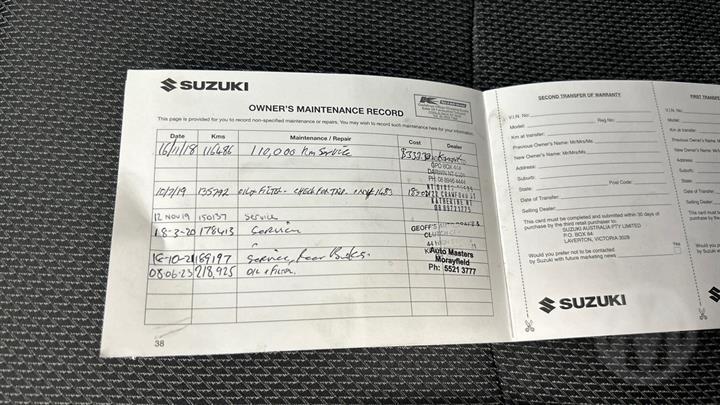 SUZUKI
OWNER'S MAINTENANCE RECORD
This page is provided for you to record non-specified maintenance or repairs. You may wish to record such maintenance here for your information.
Date Kms Maintenance / Repair Cost Dealer
16/11/18 116486 110,000 Km Service
GPO BOX
DARWIN NT
PH: 08 8946 4444
10/7/19 135792 OIL & FILTER
KATHERINE NT
12 NOV 19 150137 Service
18-3-20 178413 Service
GEOFF'S
16-10-21 189197 Service, rear Brakes
Auto Masters
Morayfield
08.06.23 218,925 OIL & FILTER.
Ph: 5521 3777
38
SUZUKI
SECOND TRANSFER OF WARRANTY
V.I.N. No:
Model: Reg No:
Km at transfer:
Previous Owner's Name: Mr/Mrs/Ms
New Owner's Name: Mr/Mrs/Ms
Address:
Suburb:
State: Post Code:
Date of Transfer:
Selling Dealer:
This card must be completed and submitted within 30 days of
purchase by the third retail purchaser to:
SUZUKI AUSTRALIA PTY LIMITED
P.O. BOX 84
LAVERTON, VICTORIA 3028
Yes
Would you prefer not to be contacted
by Suzuki with future marketing news
SUZUKI
FIRST TRANSFER
V.I.N. No:
Model:
Km at transfer:
Previous Owner's
New Owner's Name:
Address:
Suburb:
State:
Date of Transfer:
Selling Dealer:
This card must be
purchase by the
Would you
by Suzuki